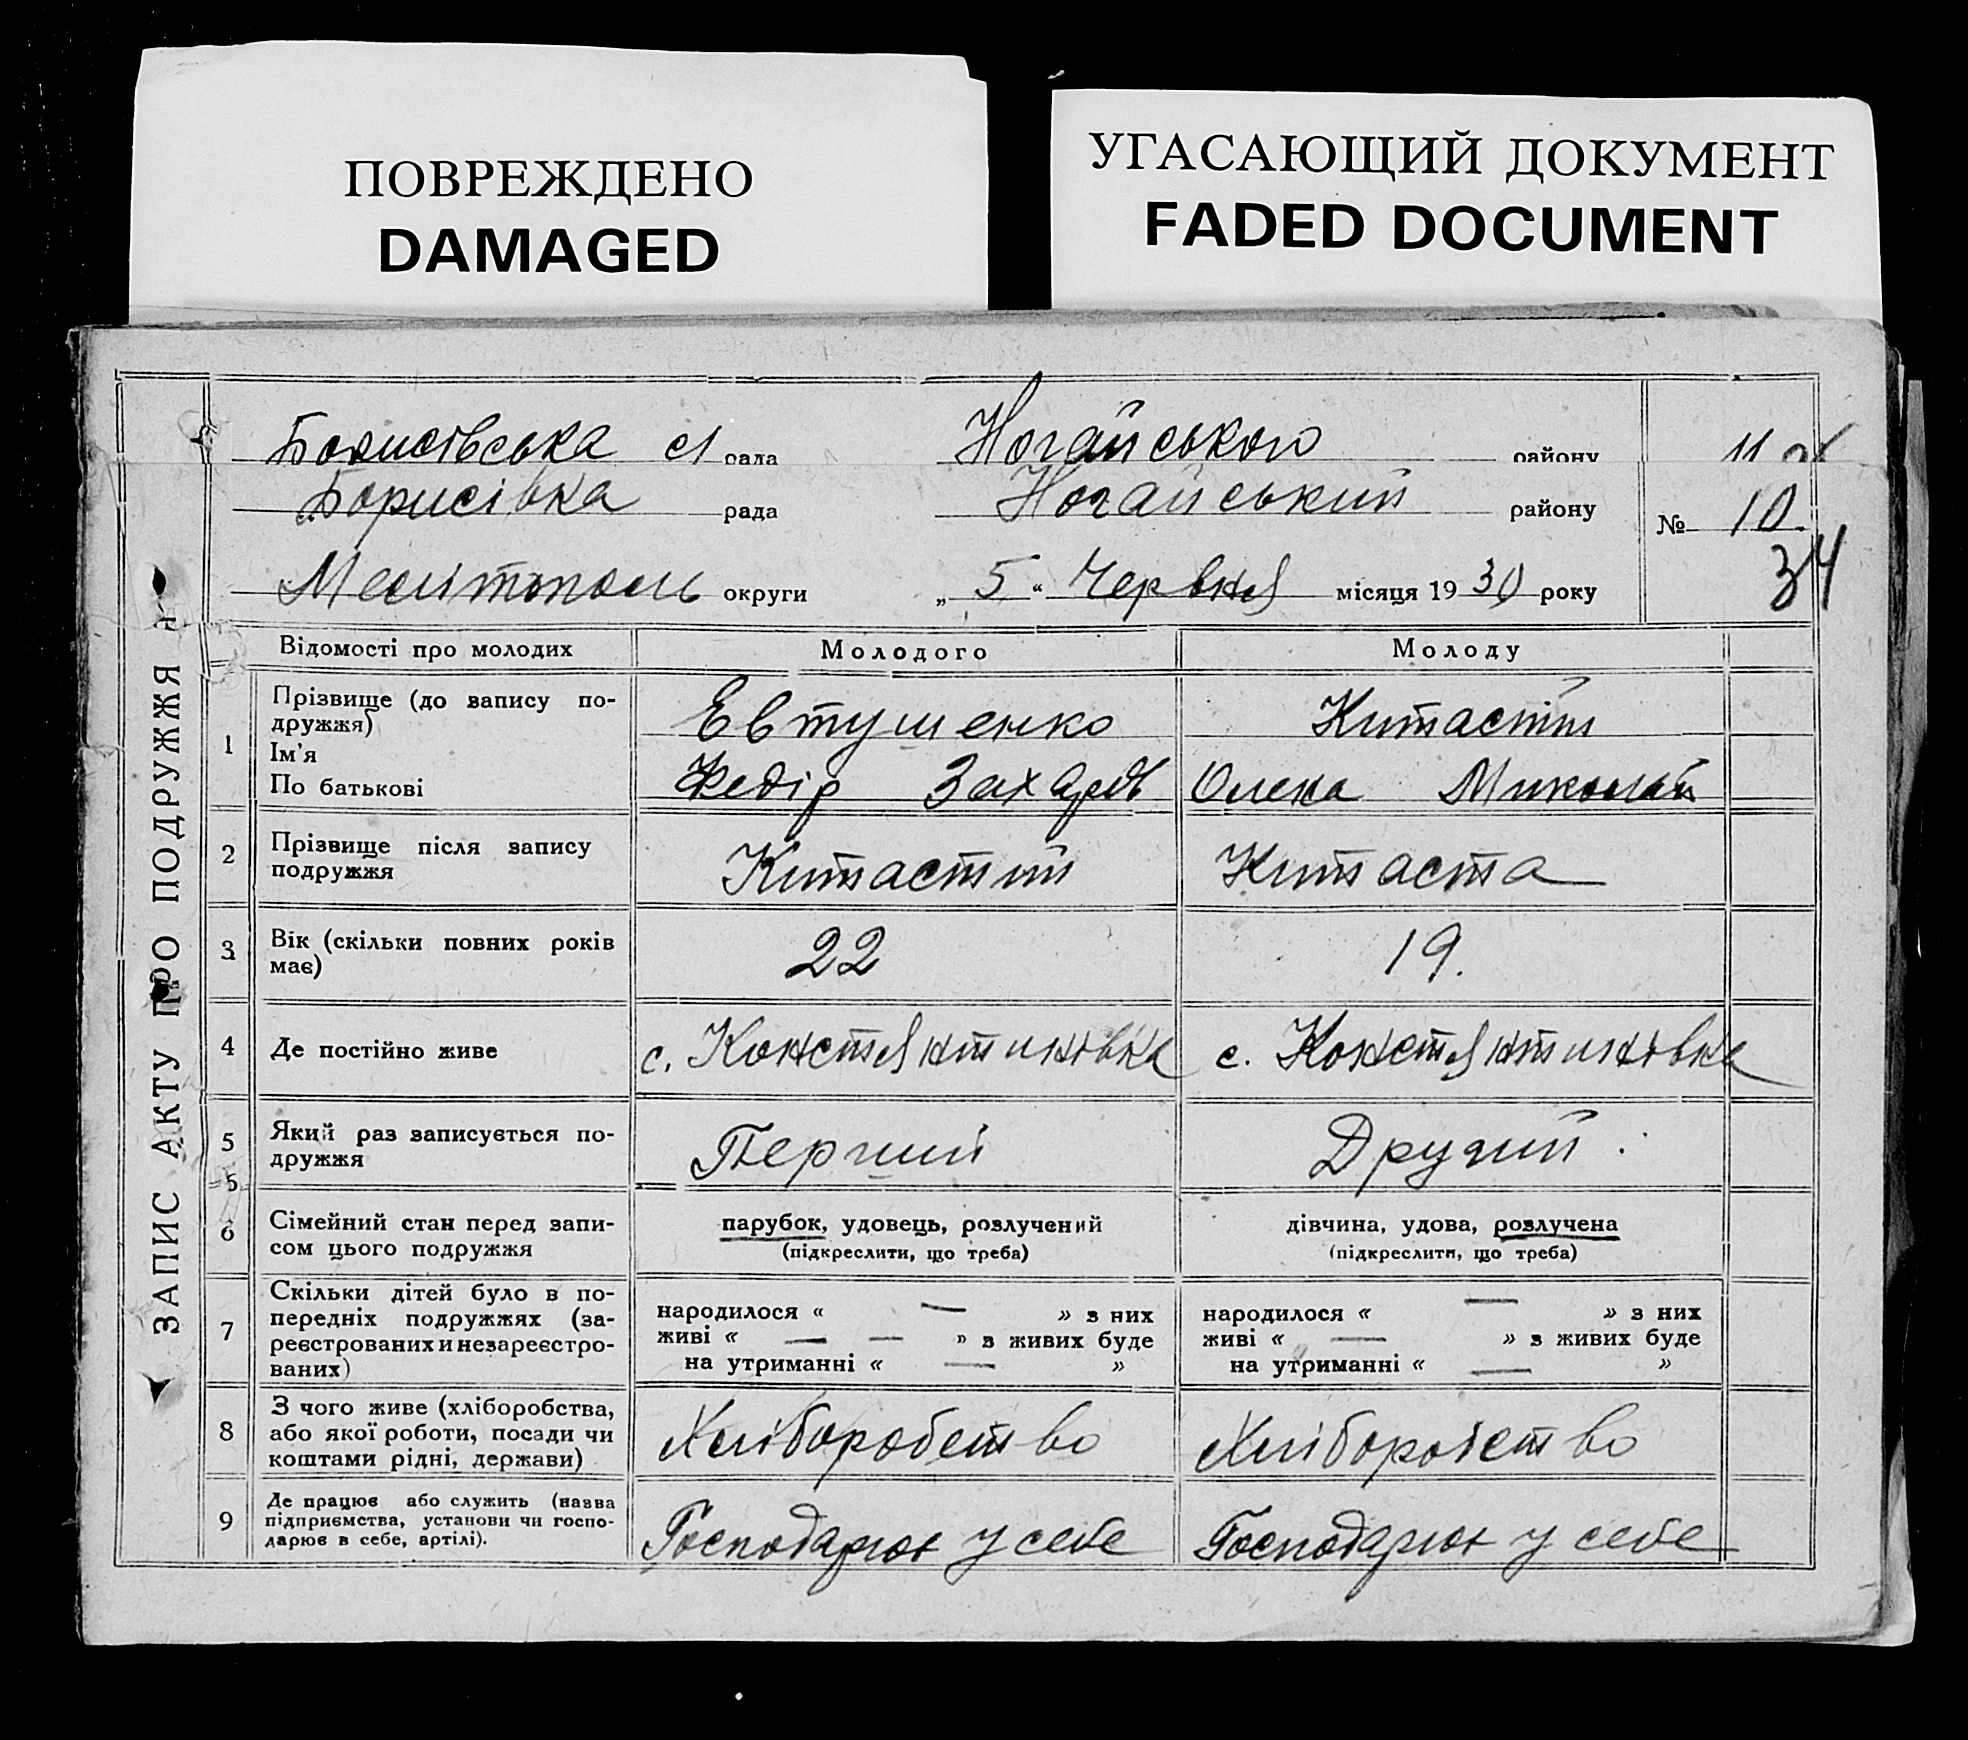 ПОВРЕЖДЕНО
DAMAGED
УГАСАЮЩИЙ ДОКУМЕНТ
FADED DOCUMENT
ЗАПИС АКТУ ПРО ПОДРУЖЖЯ
Борисівська с/ рада Ногайського району 11
Борисівка рада Ногайський району № 10
34
Мелітополь округи „ 5 “ Червня місяця 1930 року
Відомості про молодих Молодого Молоду
1 Прізвище (до запису по-
дружжя) Евтушенко Китастий
Ім'я
По батькові Федір Захарів Олена Миколай
2 Прізвище після запису
подружжя Китастий Китаста
3 Вік (скільки повних років
має) 22 19.
4 Де постійно живе с. Константинівка с. Константинівка
5 Який раз записується по-
дружжя Перший Другий
5
6 Сімейний стан перед запи-
сом цього подружжя
парубок, удовець, розлучений дівчина, удова, розлучена
(підкреслити, що треба) (підкреслити, що треба)
7 Скільки дітей було в по-
передніх подружжях (за-
реєстрованих и незареєстро-
ваних)
народилося « — » з них
живі « — — » з живих буде
на утриманні « — »
народилося « — » з них
живі « — » з живих буде
на утриманні « — »
8 З чого живе (хліборобства,
або якої роботи, посади чи
коштами рідні, держави)
Хліборобство Хліборобство
9 Де працює або служить (назва
підприємства, установи чи госпо-
дарює в себе, артілі).
Господарює у себе Господарює у себе